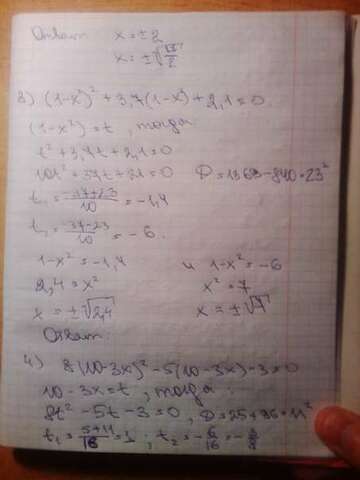 Ответ: x = ±2
x = ±√
3) (1-x²)² + 3,7(1-x²) + 2,1 = 0
(1-x²) = t, тогда
t² + 3,7t + 2,1 = 0
10t² + 37t + 21 = 0 D = 1369 - 840 = 23²
t₁ = (-37+23)/10 = -1,4
t₂ = (-37-23)/10 = -6.
1-x² = -1,4 и 1-x² = -6
2,4 = x² x² = 7
x = ±√2,4 x = ±√7
Ответ:
4) 8(10-3x)² - 5(10-3x) - 3 = 0
10 - 3x = t, тогда
8t² - 5t - 3 = 0, D = 25 + 96 = 11²
t₁ = (5+11)/16 = 1; t₂ = -6/16 = -3/8